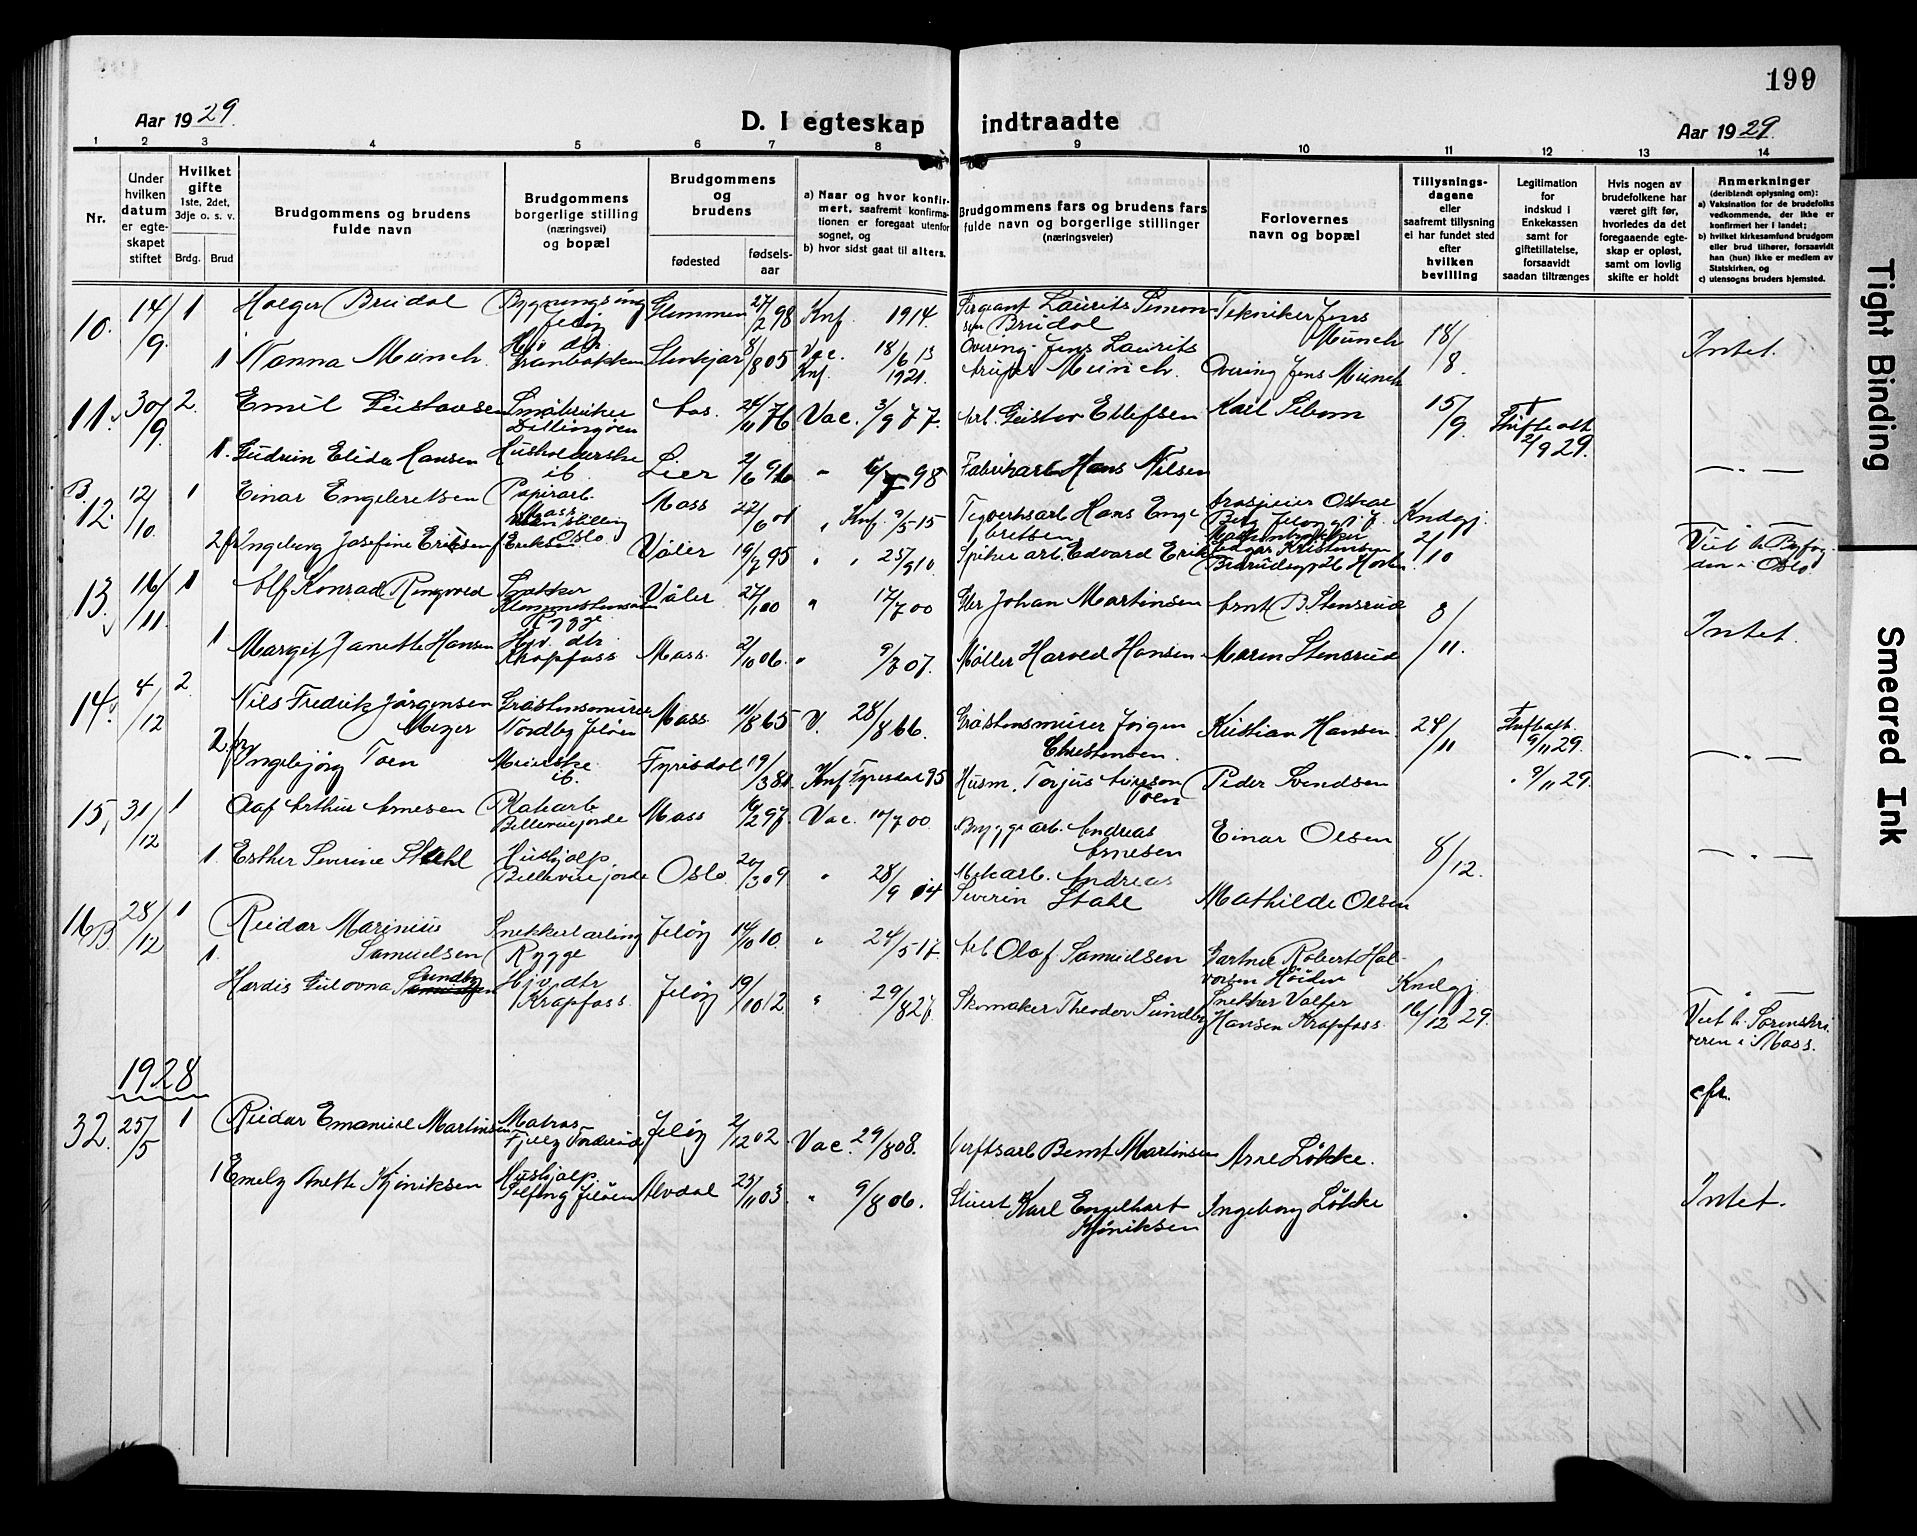 199
Aar 1929.
D. I egteskap indtraadte
Aar 1929.
1 2 3 4 5 6 7 8 9 10 11 12 13 14
Nr.
Under hvilken datum er egteskapet stiftet
Hvilket gifte 1ste, 2det, 3dje o. s. v.
Brdg. Brud
Brudgommens og brudens fulde navn
Brudgommens borgerlige stilling (næringsvei) og bopæl
Brudgommens og brudens
fødested
fødselsaar
a) Naar og hvor konfirmert, saafremt konfirmationen er foregaat utenfor sognet, og
b) hvor sidst gaat til alters.
Brudgommens fars og brudens fars fulde navn og borgerlige stillinger (næringsveier)
Forlovernes navn og bopæl
Tillysningsdagene eller saafremt tillysning ei har fundet sted efter hvilken bevilling
Legitimation for indskud i Enkekassen samt for giftetillatelse, forsaavidt saadan tiltrænges
Hvis nogen av brudefolkene har været gift før, hvorledes da det foregaaende egteskap er opløst, samt om lovlig skifte er holdt
Anmerkninger (deriblandt oplysning om):
a) Vaksination for de brudefolks vedkommende, der ikke er konfirmert her i landet;
b) hvilket kirkesamfund brudgom eller brud tilhører, forsaavidt han (hun) ikke er medlem av Statskirken, og
c) utensogns bruders hjemsted.
10. 14/9 1 Holger Brudal Bygningsing Jeløy Glemmen 27/2 98 Knf. 1914. Sergeant Laurits Simonsen Brudal Tekniker Jens Münch 18/8
1 Nanna Münch Hjv. dtr. Granbakken Stenkjær 8/8 05 Vac. 18/6 13 Knf. 1921. Overing. Jens Laurits Münch. Overing Jens Münch Intet.
11. 30/9 2. Emil Gustavsen Småbruker Aas. 24/11 76 Vac. 3/9 77. Arb. Gustav Ellefsen Karl Sibom 15/9 Skifteatt 2/9 29.
1. Gudrun Elida Hansen Husholderske ib. Lier 2/6 96 " 98 Fabrikarb Hans Nilsen — " —
B. 12. 12/10 1 Einar Engebretsen Papirarb. Moss Moss 22/6 01 " Knf. 9/5 15 Hans Engebretsen Oskar Berg Kndgj.
2 Ingeborg Josefine Eriksen f. Eriksen Oslo Våler 19/7 95 " " 25/9 10 Spikerarb. Edvard Erik Kristensen Horten 2/10 Viet h. Byfogden i Oslo
13. 16/11 1 Alf Konrad Ringvold Snekker Rygge Våler 27/1 00 " 17/7 00 Gbr Johan Martinsen Arnt B. Stensrud 3/11
1 Margit Janette Hansen Hjv. dtr. Krapfoss Moss. 2/10 06. " 9/7 07. Møller Harald Hansen Maren Stensrud Intet.
14. 4/12 2. Nils Fredrik Jørgensen Meyer Gråstensmurer Nordby Jeløen Moss. 11/8 65 V. 28/8 66. Gråstensmurer Jørgen Christensen. Kristian Hansen 24/11 Skifteatt 9/11 29.
2. Ingebjörg Toen Meierske ib. Fyrisdal 19/3 81 Knf. Fyresdal 95 Husm. Torjus Toen Peder Svendsen " 9/11 29. — " —
15. 31/12 1 Olaf Arthur Arnesen Bellevuejorde Moss 16/2 97. Vac. 10/7 00. Bryggearb. Andreas Arnesen Einar Olsen 8/12.
1. Esther Severine Stahl Hushjælp Bellevuejorde Oslo 20/3 09 " 28/9 14 Mekarb. Andreas Severin Stahl Mathilde Olsen — " —
16 B 28/12 1 Reidar Marinius Samuelsen Snekkerlærling Rygge Jeløy 14/10 10. " 24/5 17. Arb Olaf Samuelsen Gartner Robert Halvorsen Kndgj.
1. Hardis Gulovna Sundby Hjv. dtr Krapfoss. Jeløy 19/10 12. " 29/8 27. Skomaker Theodor Sundby Snekker Valfer Hansen Krapfoss. 16/12 29. Viet h. Sorenskriveren i Moss.
1928
32. 25/5 1 Reidar Emanuel Martinsen Matros Jeløy 2/12 02 Vac. 29/8 08. Verftsarb Bernt Martinsen Arne Løkke. cfr.
1 Emely Anette Kjøniksen Hushjælp. Jeløen Alvdal 25/11 03 " 9/8 06. Stuert Karl Engelhart Kjøniksen Ingeborg Løkke Intet.
Tight Binding
Smeared Ink